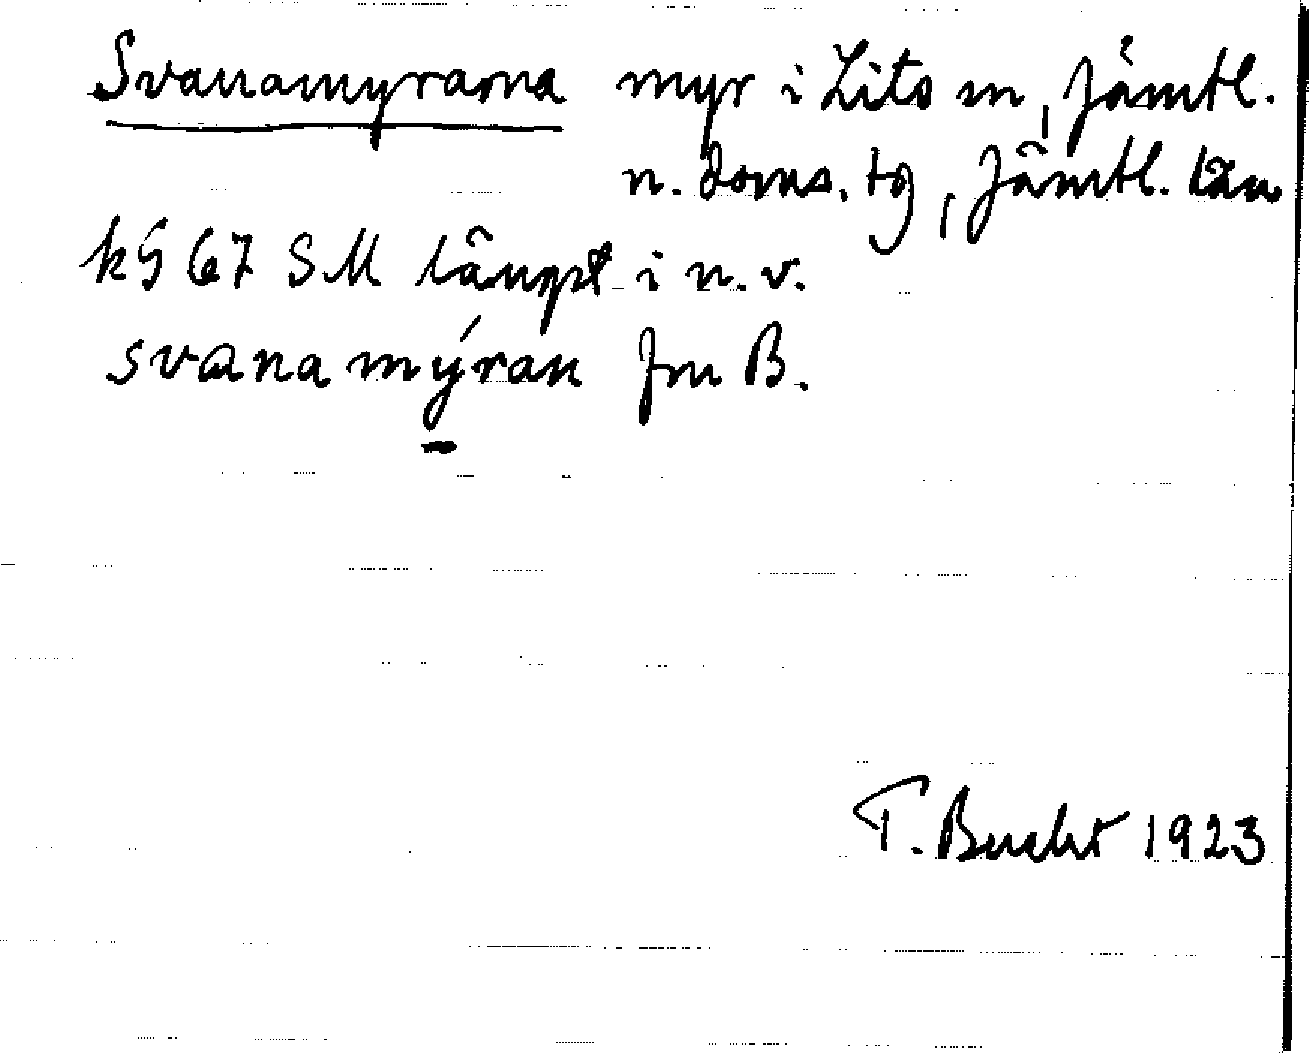 Svanamyrarna myr i Lits sn, Jämtl.
n. doms. tg, Jämtl. län
kS 67 SM lângst i n. v.
svana mýran Jm B.
T. Bucht 1923